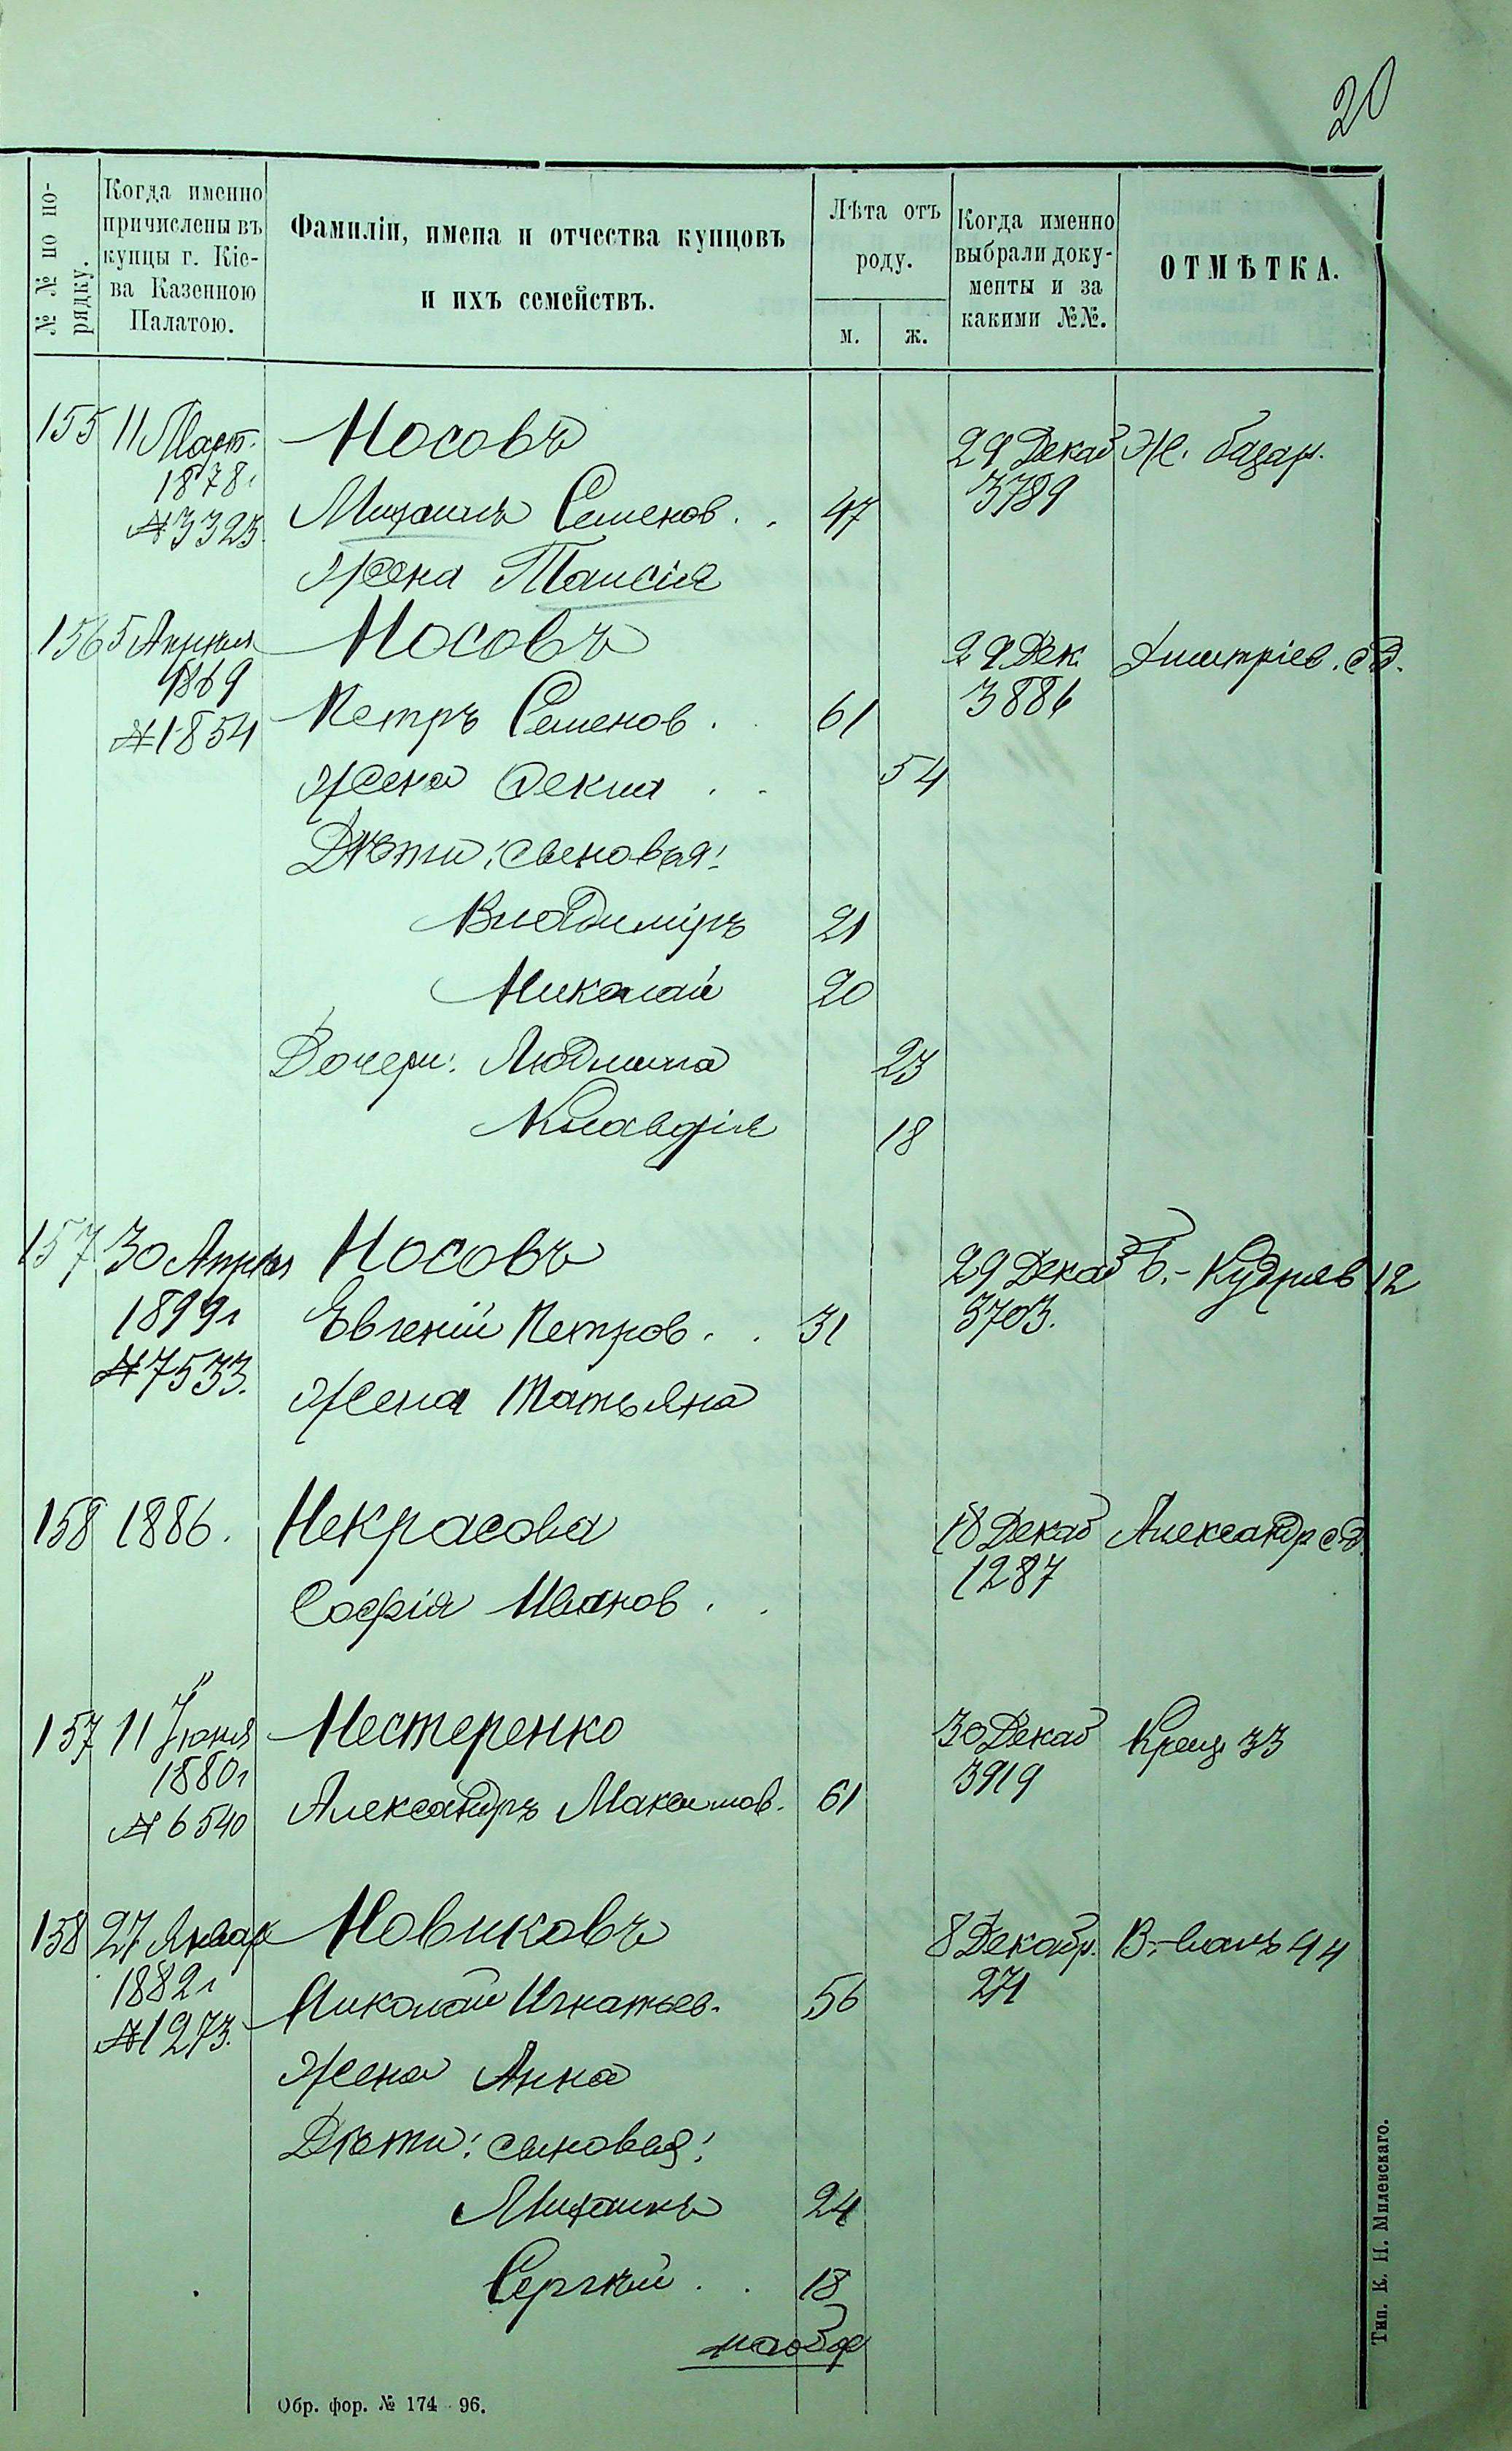 20
№ № по по-
рядку.
Когда именно
причислены въ
купцы г. Кіе-
ва Казенною
Палатою.
Фамиліи, имена и отчества купцовъ
и ихъ семействъ.
Лѣта отъ
роду.
м. ж.
Когда именно
выбрали доку-
менты и за
какими №№.
ОТМѢТКА.
155 11 Март. Носовъ 29 Декаб Ж. базар.
1878г 3789
№3323. Михаилъ Семенов. . 47
Жена Таисія
156 5 Апрѣля Носовъ 29 Дек Дмитріев. с.д.
1869 3886
№1854 Петръ Семенов. . 61
Жена Фекла . . 54
Дѣти: сыновья:
Владиміръ 21
Николай 20
Дочери: Людмила 23
Клавдія 18
157 30 Апрѣля Носовъ 29 Декаб Б.-Кудряв 12
1899г 3703.
№7533. Евгеній Петров. . 31
Жена Татьяна
158 1886. Некрасова 18 Декаб Александр с.д.
1287
Софія Иванов. .
157 11 Іюня Нестеренко 30 Декаб Крещ 33
1880г 3919
№6540 Александръ Максимов. 61
158 27 Январ Новиковъ 8 Декабр. В.-валъ 44
1882г 271
№1273. Николай Игнатьев. 56
Жена Анна
Дѣти: сыновья:
Михаилъ 24
Сергѣй . . 18
наобор
Обр. фор. № 174 96.
Тип. К. Н. Милевскаго.